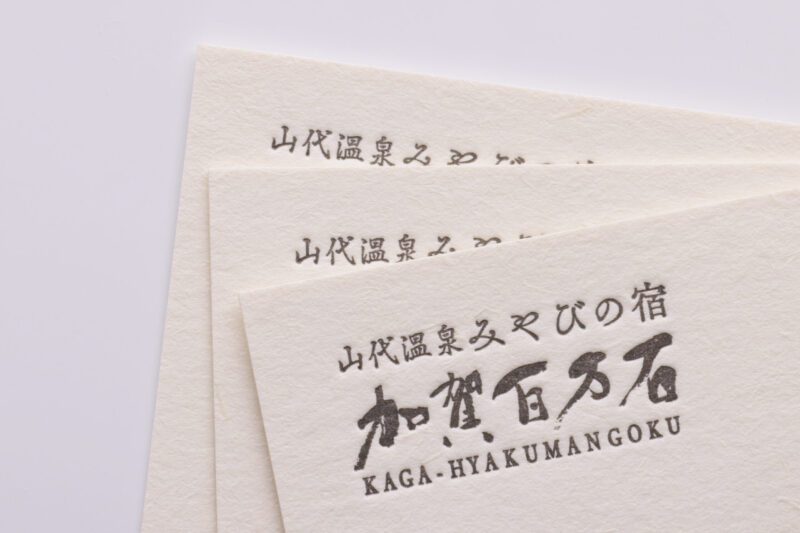 山代温泉みやびの
山代温泉みや
山代温泉みやびの宿
加賀百万石
KAGA-HYAKUMANGOKU